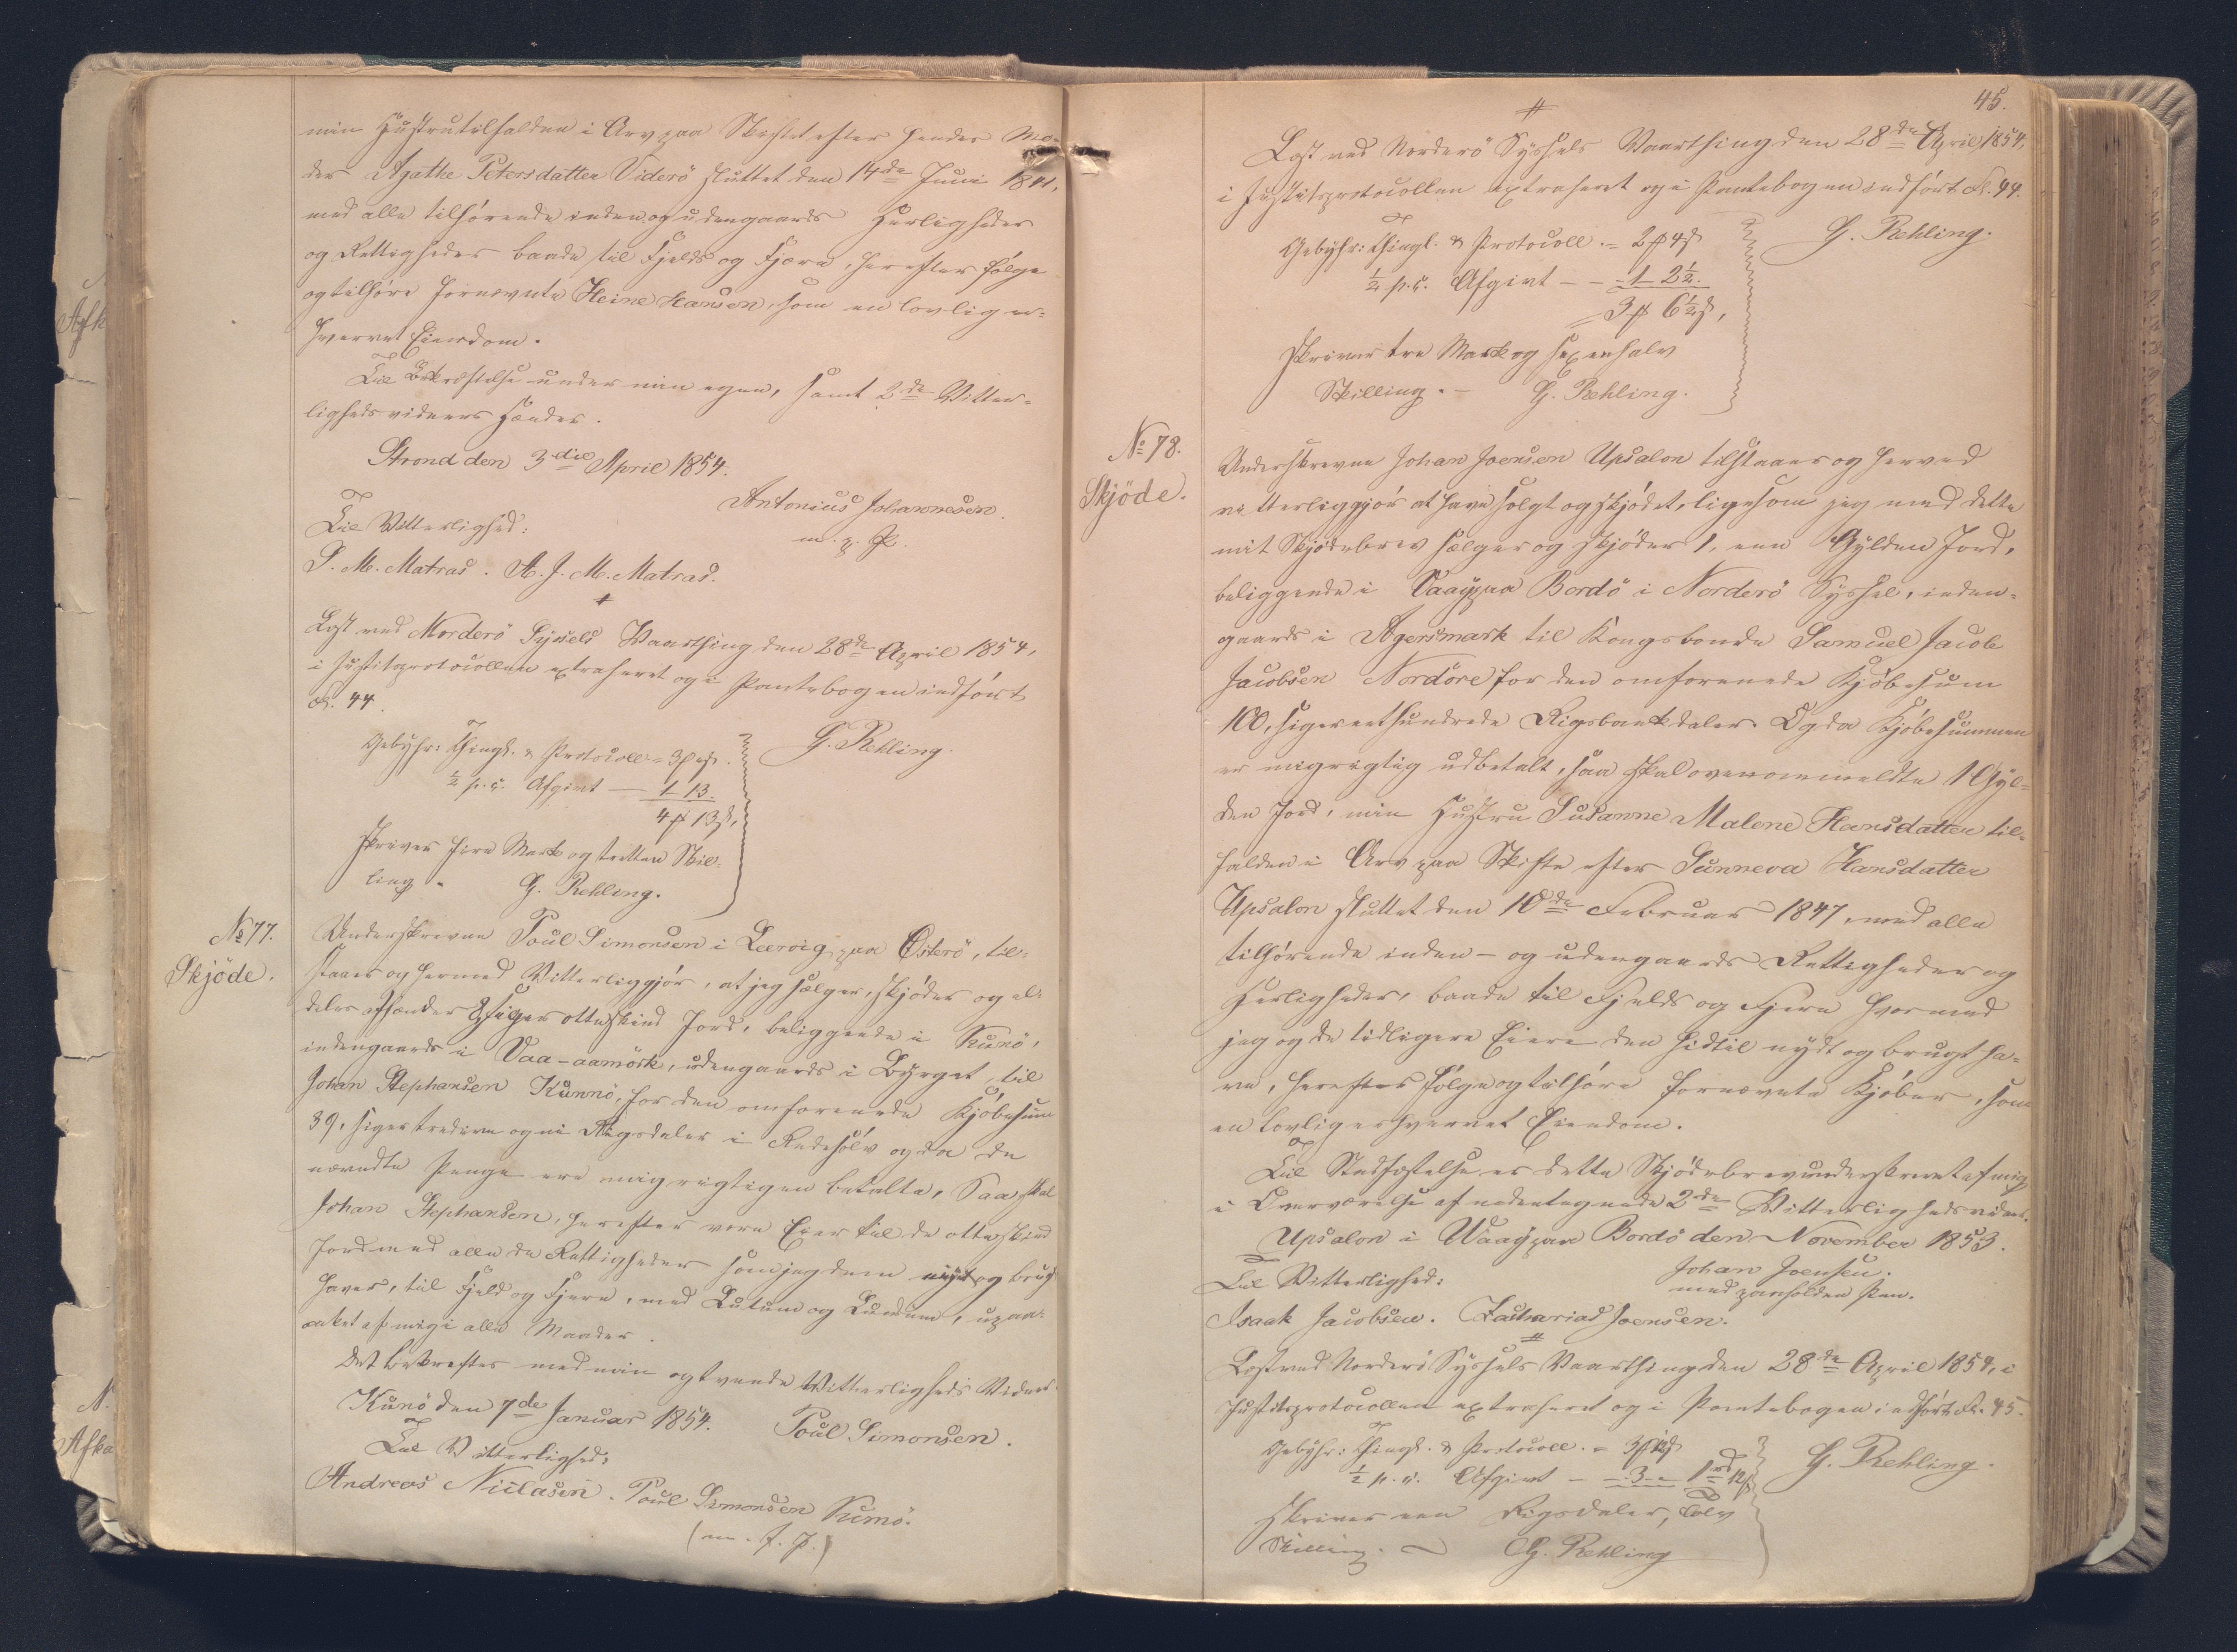 min Hustru tilfalden i Arv paa Skiftet efter hendes Mo-
der Agathe Petersdatter Viderö sluttet den 14de Juni 1841,
med alle tilhörende inden og udengaards Herligheder
og Rettigheder baade til Fjelds og Fjære, herefter fölge
og tilhöre fornævnte Heine Hansen, som en lovlig er-
hvervet Eiendom.
Til Bekræftelse under min egen, samt 2de Vitter-
lighedsvidners Hænder.
Strond den 3die April 1854.
Antonius Johannesen
m. p. P.
Til Vitterlighed:
P. M. Matras. A. J. M. Matras.
Læst ved Norderö Syssels Vaarthing den 28de April 1854,
i Justitsprotocollen extraheret og i Pantebogen indfört
Fol. 44.
G. Rehling.
Gebyhr: Thingl. & Protocoll =
½ p.C. Afgivt — 1 13.
4 13
skriver fire Mark og tretten Skil-
ling. G. Rehling.
No 77.
Skjöde.
Underskrevne Poul Simonsen i Leervig paa Österö, til-
staaer og hermed Vitterliggjör, at jeg sælger, skjöder og al-
deles afhænder 8 siger otte Skind Jord, beliggende i Kunö,
indengaards i Vaa-aamörk, udengaards i Byrget, til
Johan Stephansen Kunnö, for den omforenede Kjöbesum
39, siger tredive og ni Rigsdaler i Rede Sölv og da de
nævndte Penge ere mig rigtigen betalte, saa skal
Johan Stephansen, herefter være Eier til de otte Skind
Jord med alle de Rettigheder som jeg dem nydt og brugt
haver, til Fjeld og Fjære, med Lutum og Lundum, upaa-
anket af mig i alle Maader.
Det bekræftes med min og tvende Vitterligheds Vidner
Kunö den 7de Januar 1854. Poul Simonsen.
Til Vitterlighed:
Andreas Niclasen. Poul Simonsen Kunö.
45.
Læst ved Norderö Syssels Vaarthing den 28de April 1854,
i Justitsprotocollen extraheret og i Pantebogen indfört Fol. 44.
G. Rehling.
Gebyhr: Thingl. & Protocoll. = 2 4
½ p.C. Afgivt — 1 2½.
3 6½
skriver tre Mark og sex en halv
Skilling. — G. Rehling.
No 78.
Skjöde.
Underskrevne Johan Joensen Upsalon tilstaaer og herved
vitterliggjör at have solgt og skjödet, ligesom jeg med dette
mit Skjödebrev sælger og skjöder 1, een Gylden Jord,
beliggende i Vaag paa Bordö i Norderö Syssel, inden-
gaards i Agersmark til Kongsbonde Samuel Jacob
Jacobsen Nordöre for den omforenede Kjöbesum
100, siger eethundrede Rigsbankdaler. Og da Kjöbesummen
er mig rigtig udbetalt, saa skal ovenommeldte 1 Gyl-
den Jord, min Hustru Susanne Malene Hansdatter til-
falden i Arv paa Skifte efter Sunneva Hansdatter
Upsalon sluttet den 10de Februar 1847, med alle
tilhörende inden- og udengaards Rettigheder og
Herligheder, baade til Fjelds og Fjære hvormed
jeg og de tidligere Eiere den hidtil nydt og brugt ha-
ve, herefter fölge og tilhöre fornævnte Kjöber, som
en lovlig erhvervet Eiendom.
Til Stadfæstelse er dette Skjödebrev underskrevet af mig
i Overværelse af nedentegnede 2de Vitterlighedsvidner.
Upsalon i Waag paa Bordö den November 1853.
Johan Joensen.
med paaholden Pen.
Til Vitterlighed:
Isaak Jacobsen. Zacharias Joensen.
Læst ved Norderö Syssels Vaarthing den 28de April 1854, i
Justitsprotocollen extraheret og i Pantebogen indfört Fol. 45.
G. Rehling.
Gebyhr: Thingl. & Protocoll. =
½ p.C. Afgivt —
skriver een Rigsdaler, tolv
Skilling. G. Rehling